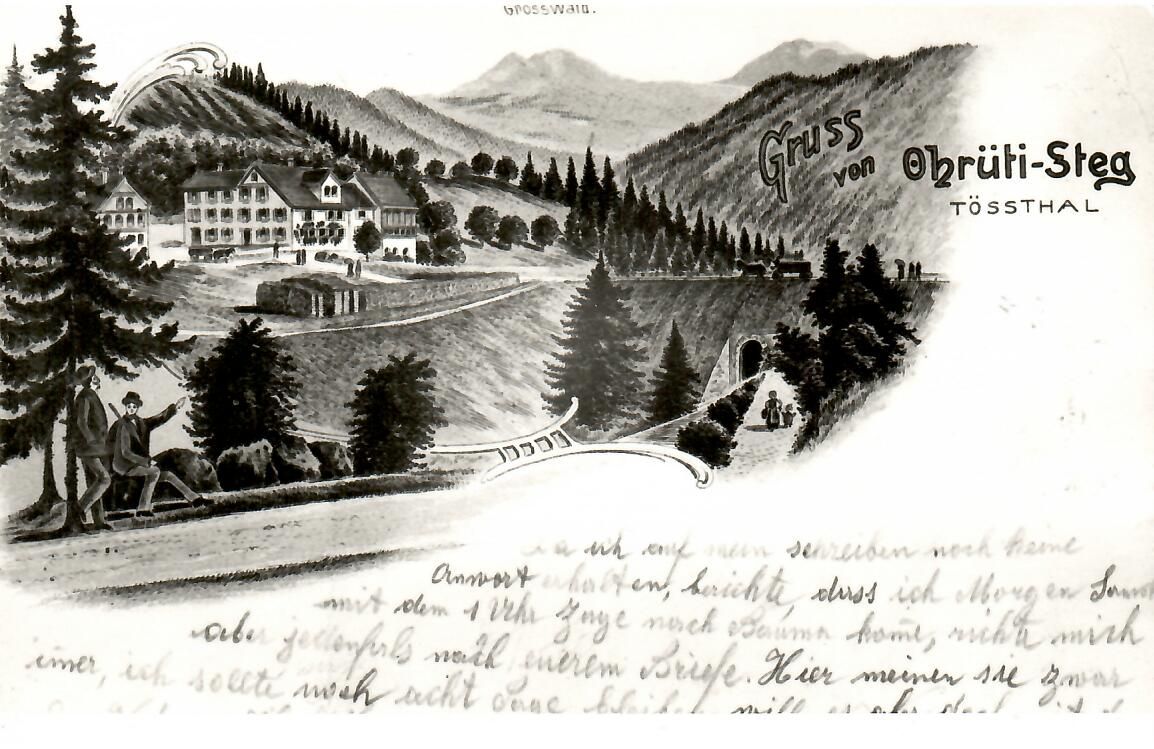 Grosswald.
Gruss
von Ohrüti-Steg
TÖSSTHAL
Da ich auf mein schreiben noch keine
Anwort erhalten, berichte, dass ich Morgen
mit dem 1 Uhr Zuge nach Bauma kome, richte mich
aber jedenfals nach euerem Briefe. Hier meinen sie zwar
imer, ich sollte noch acht Tage bleiben